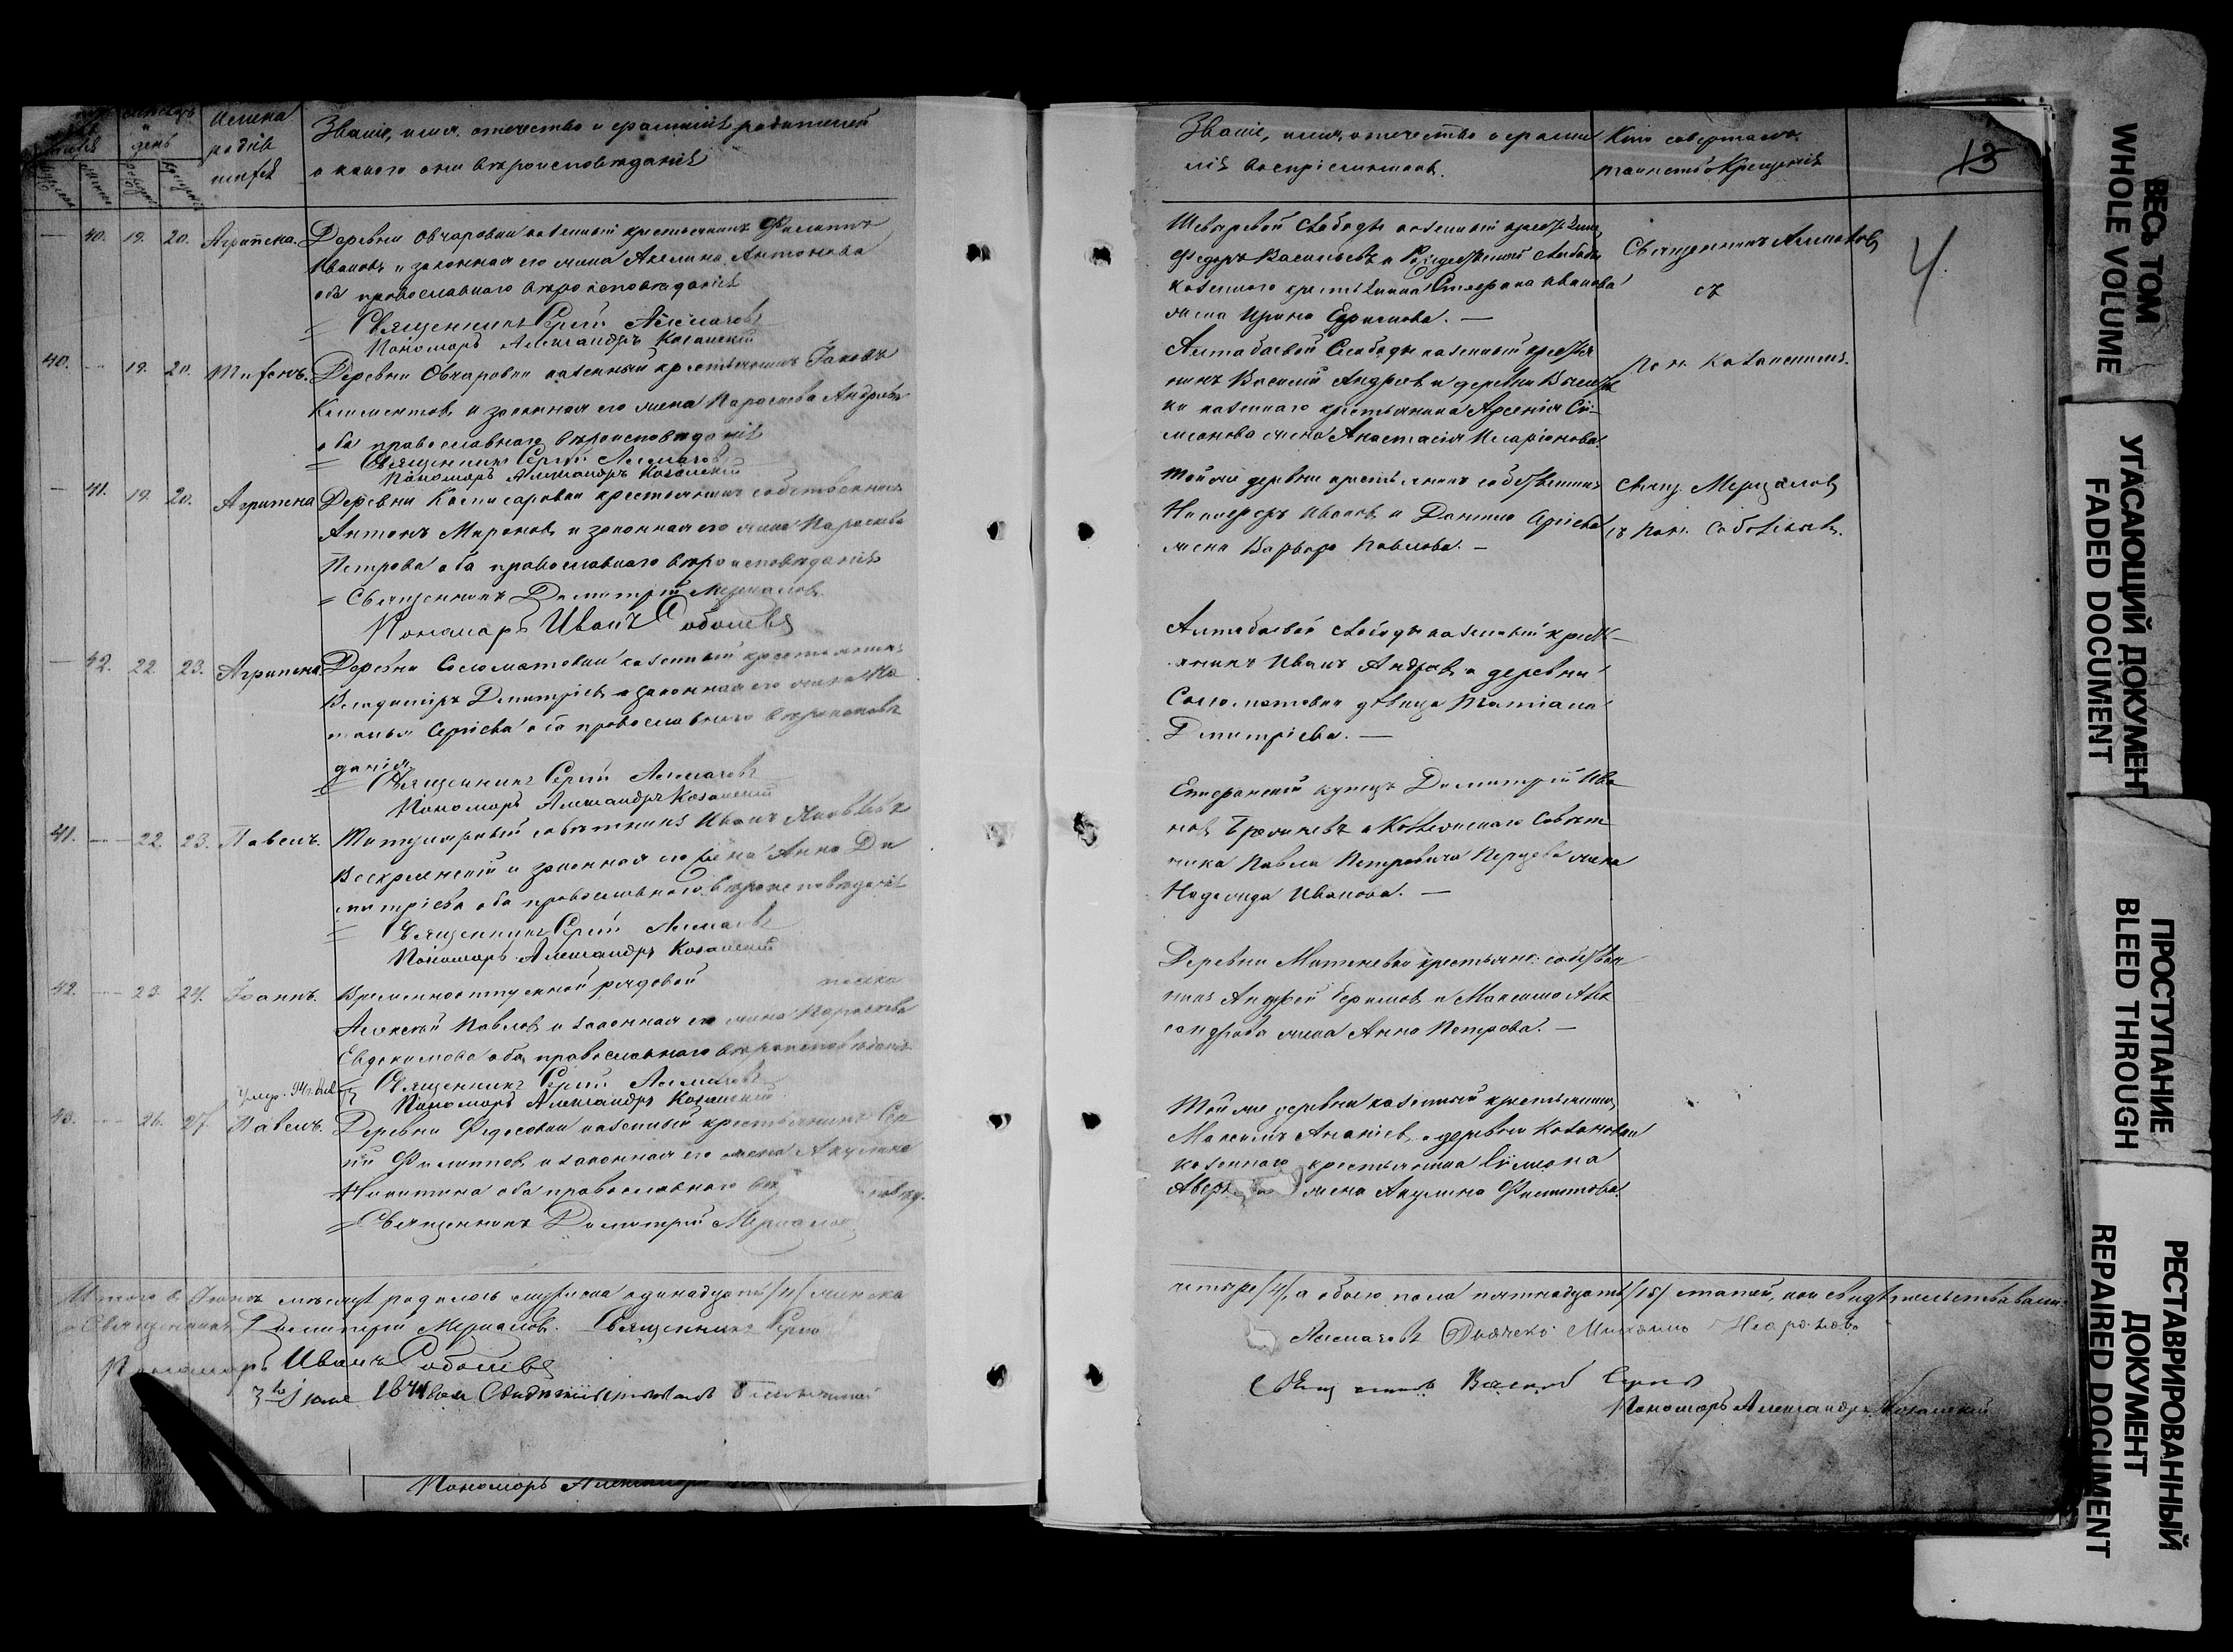 Имена родившихся
день
Званіе, имя, отечество и фамилія родителей
и какого они вѣроисповѣданія
40. 19. 20. Агрипена. Деревни Овчаровки казенный крестьянинъ Филиппъ
Ивановъ и законная его жена Акелина Антонова
оба православнаго вѣроисповѣданія
Священникъ Сергій Алмазовъ
Пономарь Александръ Казанскій
40. 19. 20. Тифонъ. Деревни Овчаровки казенный крестьянинъ Іаковъ
Климентовъ и законная его жена Параскева Андреева
оба православнаго вѣроисповѣданія
Священникъ Сергій Алмазовъ
Пономарь Александръ Казанскій
41. 19. 20. Агрипена Деревни крестьянинъ собственникъ
Антонъ Мироновъ и законная его жена Параскева
Петрова оба православнаго вѣроисповѣданія
Священникъ Димитрій Мерцаловъ
Пономарь Иванъ Соболевъ
42. 22. 23. Агрипена Деревни Соломатовки казенный крестьянинъ
Владиміръ Димитріевъ и законная его жена На
талья Сергіева оба православнаго вѣроисповѣ
данія
Священникъ Сергій Алмазовъ
Пономарь Александръ Казанскій
41. 22. 23. Павелъ. Титулярный совѣтникъ Иванъ Яковлевъ
Воскресенскій и законная его жена Анна Ди
митріева оба православнаго вѣроисповѣданія
Священникъ Сергій Алмазовъ
Пономарь Александръ Казанскій
42. 23. 24. Іоаннъ. Временноотпускной рядовой
Алексѣй Павловъ и законная его жена Параскева
Евдокимова оба православнаго вѣроисповѣданія
Священникъ Сергій Алмазовъ
Пономарь Александръ Казанскій
43. 26. 27. Павелъ. Деревни Федосовки казенный крестьянинъ Сер
гій Филипповъ и законная его жена Акулина
Никитина оба православнаго
Священникъ Димитрій Мерцаловъ
Итого въ Іюнѣ мѣсяцѣ родилось мужеска одинадцать /11/ женска
Священникъ Димитрій Мерцаловъ. Священникъ Сергій
Пономарь Иванъ Соболевъ
Пономарь Александръ
Званіе, имя, отечество и фами
лія воспріемниковъ.
Кто совершалъ
таинство Крещенія
13
4.
Шевыревой Слободы казенный крестьянинъ
Федоръ Васильевъ и Слободы
казеннаго крестьянина Стефана Иванова
жена Ирина Ефимова. —
Священникъ Алмазовъ
съ
Алтабаевой Слободы казенный крестья
нинъ Василій Андреевъ и деревни
казеннаго крестьянина Арсенія Си
меонова жена Анастасія Иларіонова.
Пон. Казанскимъ.
Той же деревни крестьянинъ собственникъ
Никифоръ Ивановъ и Данила Сергіева
жена Варвара Павлова. —
Свящ. Мерцаловъ
съ Пон. Соболевымъ.
Алтабаевой Слободы казенный крест
янинъ Иванъ Андреевъ и деревни
Соломатовки дѣвица Татіана
Димитріева. —
Епифанскій купецъ Димитрій Ива
новъ и Коллежскаго Совѣт
ника Павла Петровича жена
Надежда Иванова. —
Деревни Матеневки крестьяне: собствен
никъ Андрей Ефимовъ и Максима Алек
сандрова жена Анна Петрова. —
Той же деревни казенный крестьянинъ
Максимъ Ананіевъ и деревни Казановки
казеннаго крестьянина Симеона
жена Акулина Филипова.
четыре /4/, а обоего пола пятнадцать /15/
Алмазовъ
Пономарь Александръ Казанскій
ВЕСЬ ТОМ
WHOLE VOLUME
УГАСАЮЩИЙ ДОКУМЕНТ
FADED DOCUMENT
ПРОСТУПАНИЕ
BLEED THROUGH
РЕСТАВРИРОВАННЫЙ
ДОКУМЕНТ
REPAIRED DOCUMENT